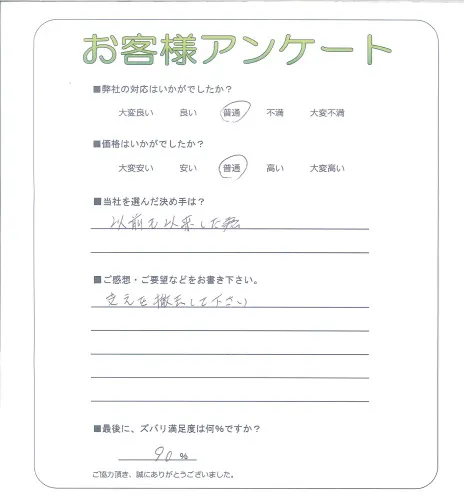 お客様アンケート
■弊社の対応はいかがでしたか？
大変良い 良い 普通 不満 大変不満
■価格はいかがでしたか？
大変安い 安い 普通 高い 大変高い
■当社を選んだ決め手は？
以前も以来した為
■ご感想・ご要望などをお書き下さい。
を撤去して下さい
■最後に、ズバリ満足度は何%ですか？
90 %
ご協力頂き、誠にありがとうございました。